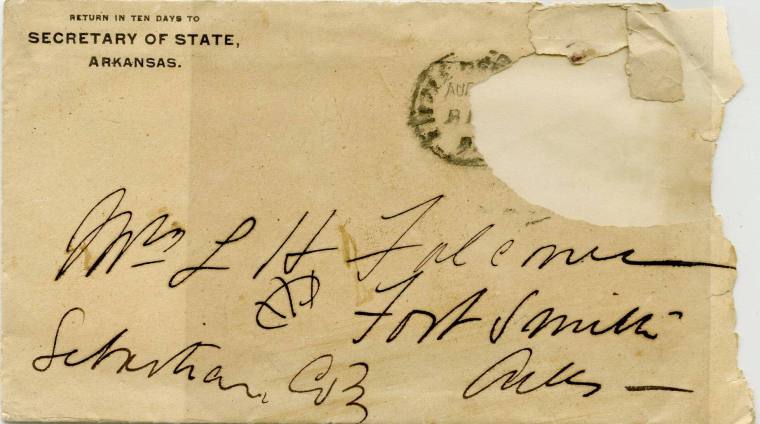 RETURN IN TEN DAYS TO
SECRETARY OF STATE,
ARKANSAS.
AUG
Mrs L H Falconer
Fort Smith
Sebastian Co Arks